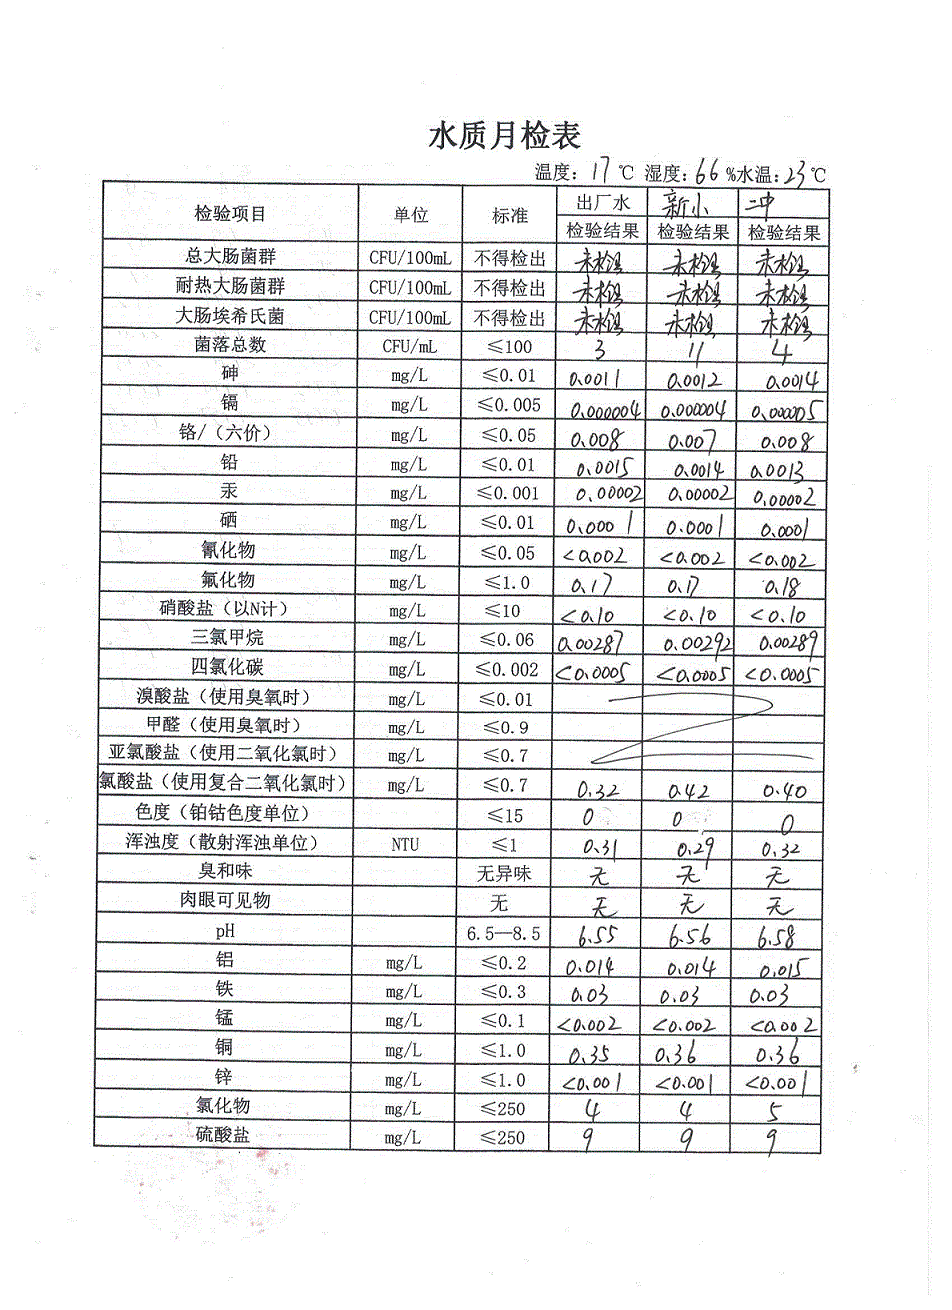 水质月检表
温度: 17 ℃ 湿度: 66 %水温: 23 ℃
检验项目 单位 标准 出厂水 新小 二中
检验结果 检验结果 检验结果
总大肠菌群 CFU/100mL 不得检出 未检出 未检出 未检出
耐热大肠菌群 CFU/100mL 不得检出 未检出 未检出 未检出
大肠埃希氏菌 CFU/100mL 不得检出 未检出 未检出 未检出
菌落总数 CFU/mL ≤100 3 11 4
砷 mg/L ≤0.01 0.0011 0.0012 0.0014
镉 mg/L ≤0.005 0.000004 0.000004 0.000005
铬/(六价) mg/L ≤0.05 0.008 0.007 0.008
铅 mg/L ≤0.01 0.0015 0.0014 0.0013
汞 mg/L ≤0.001 0.00002 0.00002 0.00002
硒 mg/L ≤0.01 0.0001 0.0001 0.0001
氰化物 mg/L ≤0.05 <0.002 <0.002 <0.002
氟化物 mg/L ≤1.0 0.17 0.17 0.18
硝酸盐(以N计) mg/L ≤10 <0.10 <0.10 <0.10
三氯甲烷 mg/L ≤0.06 0.00287 0.00292 0.00289
四氯化碳 mg/L ≤0.002 <0.0005 <0.0005 <0.0005
溴酸盐(使用臭氧时) mg/L ≤0.01
甲醛(使用臭氧时) mg/L ≤0.9
亚氯酸盐(使用二氧化氯时) mg/L ≤0.7
氯酸盐(使用复合二氧化氯时) mg/L ≤0.7 0.32 0.42 0.40
色度(铂钴色度单位) ≤15 0 0 0
浑浊度(散射浑浊单位) NTU ≤1 0.31 0.29 0.32
臭和味 无异味 无 无 无
肉眼可见物 无 无 无 无
pH 6.5—8.5 6.55 6.56 6.58
铝 mg/L ≤0.2 0.014 0.014 0.015
铁 mg/L ≤0.3 0.03 0.03 0.03
锰 mg/L ≤0.1 <0.002 <0.002 <0.002
铜 mg/L ≤1.0 0.35 0.36 0.36
锌 mg/L ≤1.0 <0.001 <0.001 <0.001
氯化物 mg/L ≤250 4 4 5
硫酸盐 mg/L ≤250 9 9 9